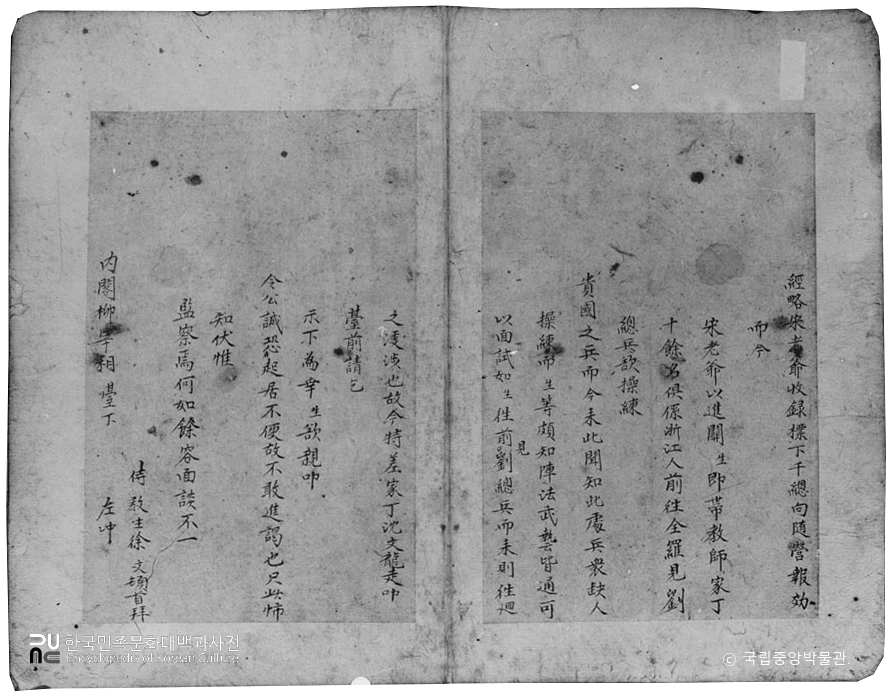 經略宋老爺收錄標下千總向随營報効
而今
宋老爺以進關生即帶教師家丁
十餘名俱係浙江人前往全羅見劉
總兵欲操練
貴國之兵而今来此聞知此處兵衆缺人
操練而生等頗知陣法武藝皆通可
以面試如生往前見劉總兵而来則往廻
之淹滯也故今特差家丁沈文龍走叩
臺前請乞
示下為幸生欲親叩
令公誠恐起居不便故不敢進謁也只此怖
知伏惟
監察焉何如餘容面談不一
侍教生徐文頓首拜
内閣柳宰相臺下
左冲
한국민족문화대백과사전
Encyclopedia of Korean Culture
© 국립중앙박물관.